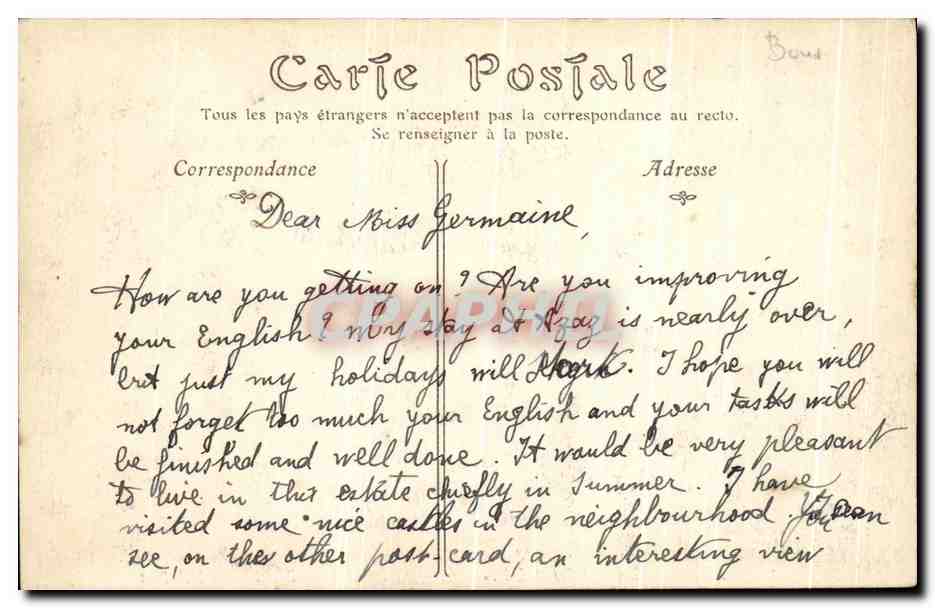 Bous
Carte Postale
Tous les pays étrangers n'acceptent pas la correspondance au recto.
Se renseigner à la poste.
Correspondance Adresse
Dear Miss Germaine,
How are you getting on? Are you improving
your English? My stay at Azaz is nearly over,
but just my holidays will start. I hope you will
not forget too much your English and your tasks will
be finished and well done. It would be very pleasant
to live in this estate chiefly in Summer. I have
visited some nice castles in the neighbourhood. You can
see, on the other post-card, an interesting view
CRAPSHU